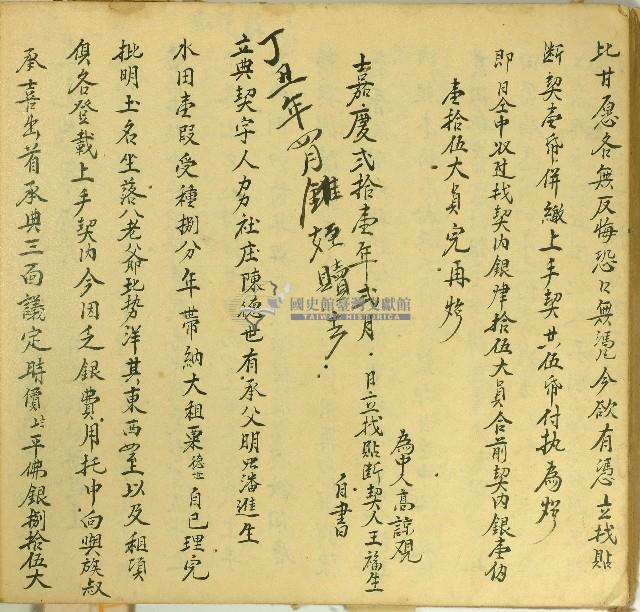 比甘愿各無反悔恐口無憑今欲有憑立找貼
断契壹帋併繳上手契共伍帋付执為炤
即日仝中收过找契内銀肆拾伍大員合前契内銀壹佰
壹拾伍大員完再炤
為中人高諒觀
嘉慶弍拾壹年弍月 日立找貼断契人王福生
自書
丁丑年四月雒姪贖去
立典契字人力力社庄陳德世有承父明買潘進生
水田壹段受種捌分年帶納大租粟德世自己理完
批明土名坐落八老爺北势洋其東西四至以及租項
俱各登載上手契内今因乏銀費用托中向與族叔
承喜出首承典三面議定時價上平佛銀捌拾伍大
國史館臺灣文獻館
TAIWAN HISTORICA